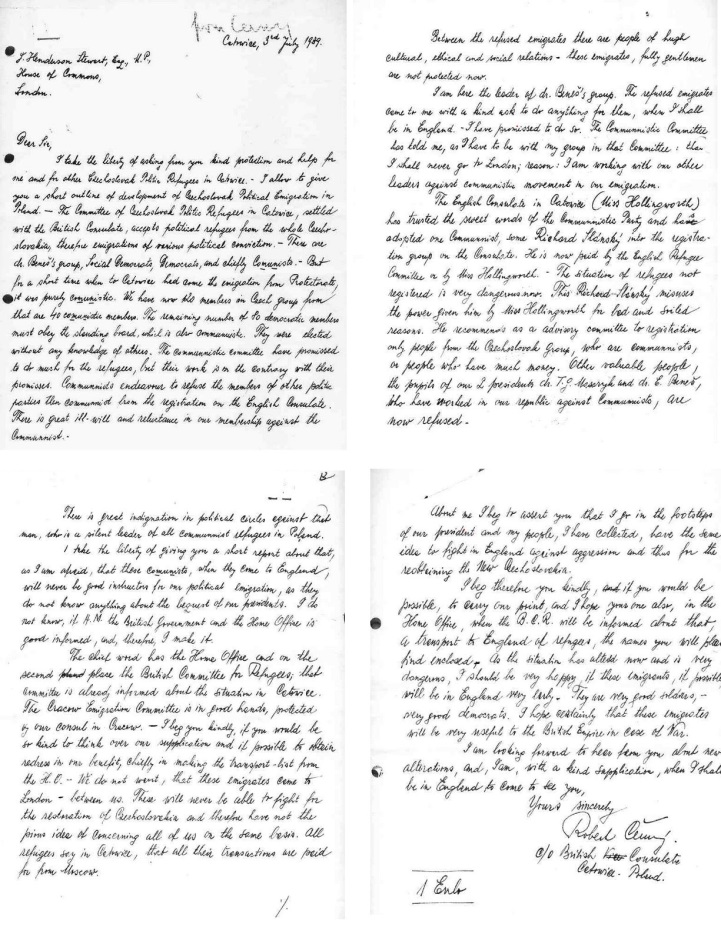 from Cerny
Catowice, 3rd July 1939.
J. Henderson Stewart, Esq., M.P.,
House of Commons,
London.
Dear Sir,
I take the liberty of asking from you kind protection and help for
me and for other Czechoslovak Politic Refugees in Catowice. - I allow to give
you a short outline of development of Czechoslovak Political Emigration in
Poland. - The Committee of Czechoslovak Politic Refugees in Catowice, settled
with the British Consulate, accepts political refugees from the whole Czecho-
slovakia, therefore emigrations of various political conviction. - There are
dr. Beneš's group, Social Democrats, Democrats, and chiefly Comunists. - But
for a short time when to Catowice had come the emigration from Protectorate,
it was purely comunistic. We have now 120 members in Czech group from
that are 40 comunistic members. The remaining number of 80 democratic members
must obey the standing board, which is also communistic. They were elected
without any knowledge of others. The communistic committee have promissed
to do much for the refugees, but their work is on the contrary with their
promisses. Communists endeavour to refuse the members of other politic
parties then communist from the registration on the English Consulate.
There is great ill-will and reluctance in our membership against the
Communist. -
2
Between the refused emigrates there are people of high
cultural, ethical and social relations - these emigrates, fully gentlemen
are not protected now.
I am here the leader of dr. Beneš's group. The refused emigrates
come to me with a kind ask to do anything for them, when I shall
be in England. - I have promissed to do so. The Communistic Committee
has told me, as I have to be with my group in that Committee: that
I shall never go to London; reason: I am working with our other
leaders against communistic movement in our emigration.
The English Consulate in Catovice (Miss Hollingworth)
has trusted the sweet words of the Communistic Party and have
adopted one Communist, some Richard Slánský into the registra-
tion group on the Consulate. He is now paid by the English Refugee
Committee or by Miss Hollingworth. - The situation of refugees not
registered is very dangerous now. This Richard Slánský misuses
the power given him by Miss Hollingworth for bad and soiled
reasons. He recommends as a advisory committee to registration
only people from the Czechoslovak Group, who are communists,
or people who have much money. Other valuable people,
the pupils of our 2 presidents dr. T. G. Masaryk and dr. E. Beneš,
who have worked in our republic against Communists, are
now refused. -
3
There is great indignation in political circles against that
man, who is a silent leader of all communist refugees in Poland.
I take the liberty of giving you a short report about that,
as I am afraid, that these comunists, when they come to England,
will never be good instructors for our political emigration, as they
do not know anything about the bequest of our presidents. I do
not know, if H.M. the British Government and the Home Office is
good informed, and, therefore, I make it.
The chief word has the Home Office and on the
second place the British Committee for Refugees; that
committee is already informed about the situation in Catowice.
The Cracow Emigration Committee is in good hands, protected
by our consul in Cracow. - I beg you kindly, if you would be
so kind to think over our supplication and if possible to obtain
redress in our benefit, chiefly in making the transport-list from
the H.O. - We do not want, that these emigrates come to
London - between us. These will never be able to fight for
the restoration of Czechoslovakia and therefore have not the
pious idea of concerning all of us on the same basis. All
refugees say in Catowice, that all their transactions are paid
for from Moscow.
%
About me I beg to assert you that I go in the footsteps
of our president and my people, I have collected, have the same
idea to fight in England against aggression and thus for the
reobtaining the New Czechoslovakia.
I beg therefore you kindly, and if you would be
possible, to carry our point, and I hope yours one also, in the
Home Office, when the B.C.R. will be informed about that
a transport to England of refugees, the names you will please
find enclosed. As the situation has altered now and is very
dangerous, I should be very happy, if these emigrants, if possible
will be in England very early. - They are very good soldiers, -
very good democrats. I hope certainly that these emigrates
will be very useful to the British Empire in case of War.
I am looking forward to hear from you about new
alterations, and, I am, with a kind supplication, when I shall
be in England to come to see you,
Yours sincerely
Robert Cerny.
c/o British Consulate
Catowice - Poland.
1 Enlo